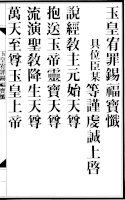 玉皇宥罪錫福寶懺
具位臣某等謹虔誠上啓
說經教主元始天尊
抱送玉帝靈寶天尊
流演聖教降生天尊
萬天至尊玉皇上帝
玉皇宥罪錫福寶懺